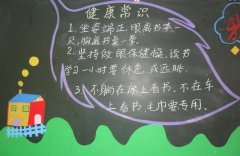 健康常识
1、坐姿端正,眼离书本一
尺,胸离书桌一拳。
2、坚持做眼保健操,读书
学习一小时要休息,或远眺。
3、不躺在床上看书、不在车
上看书,毛巾要专用。